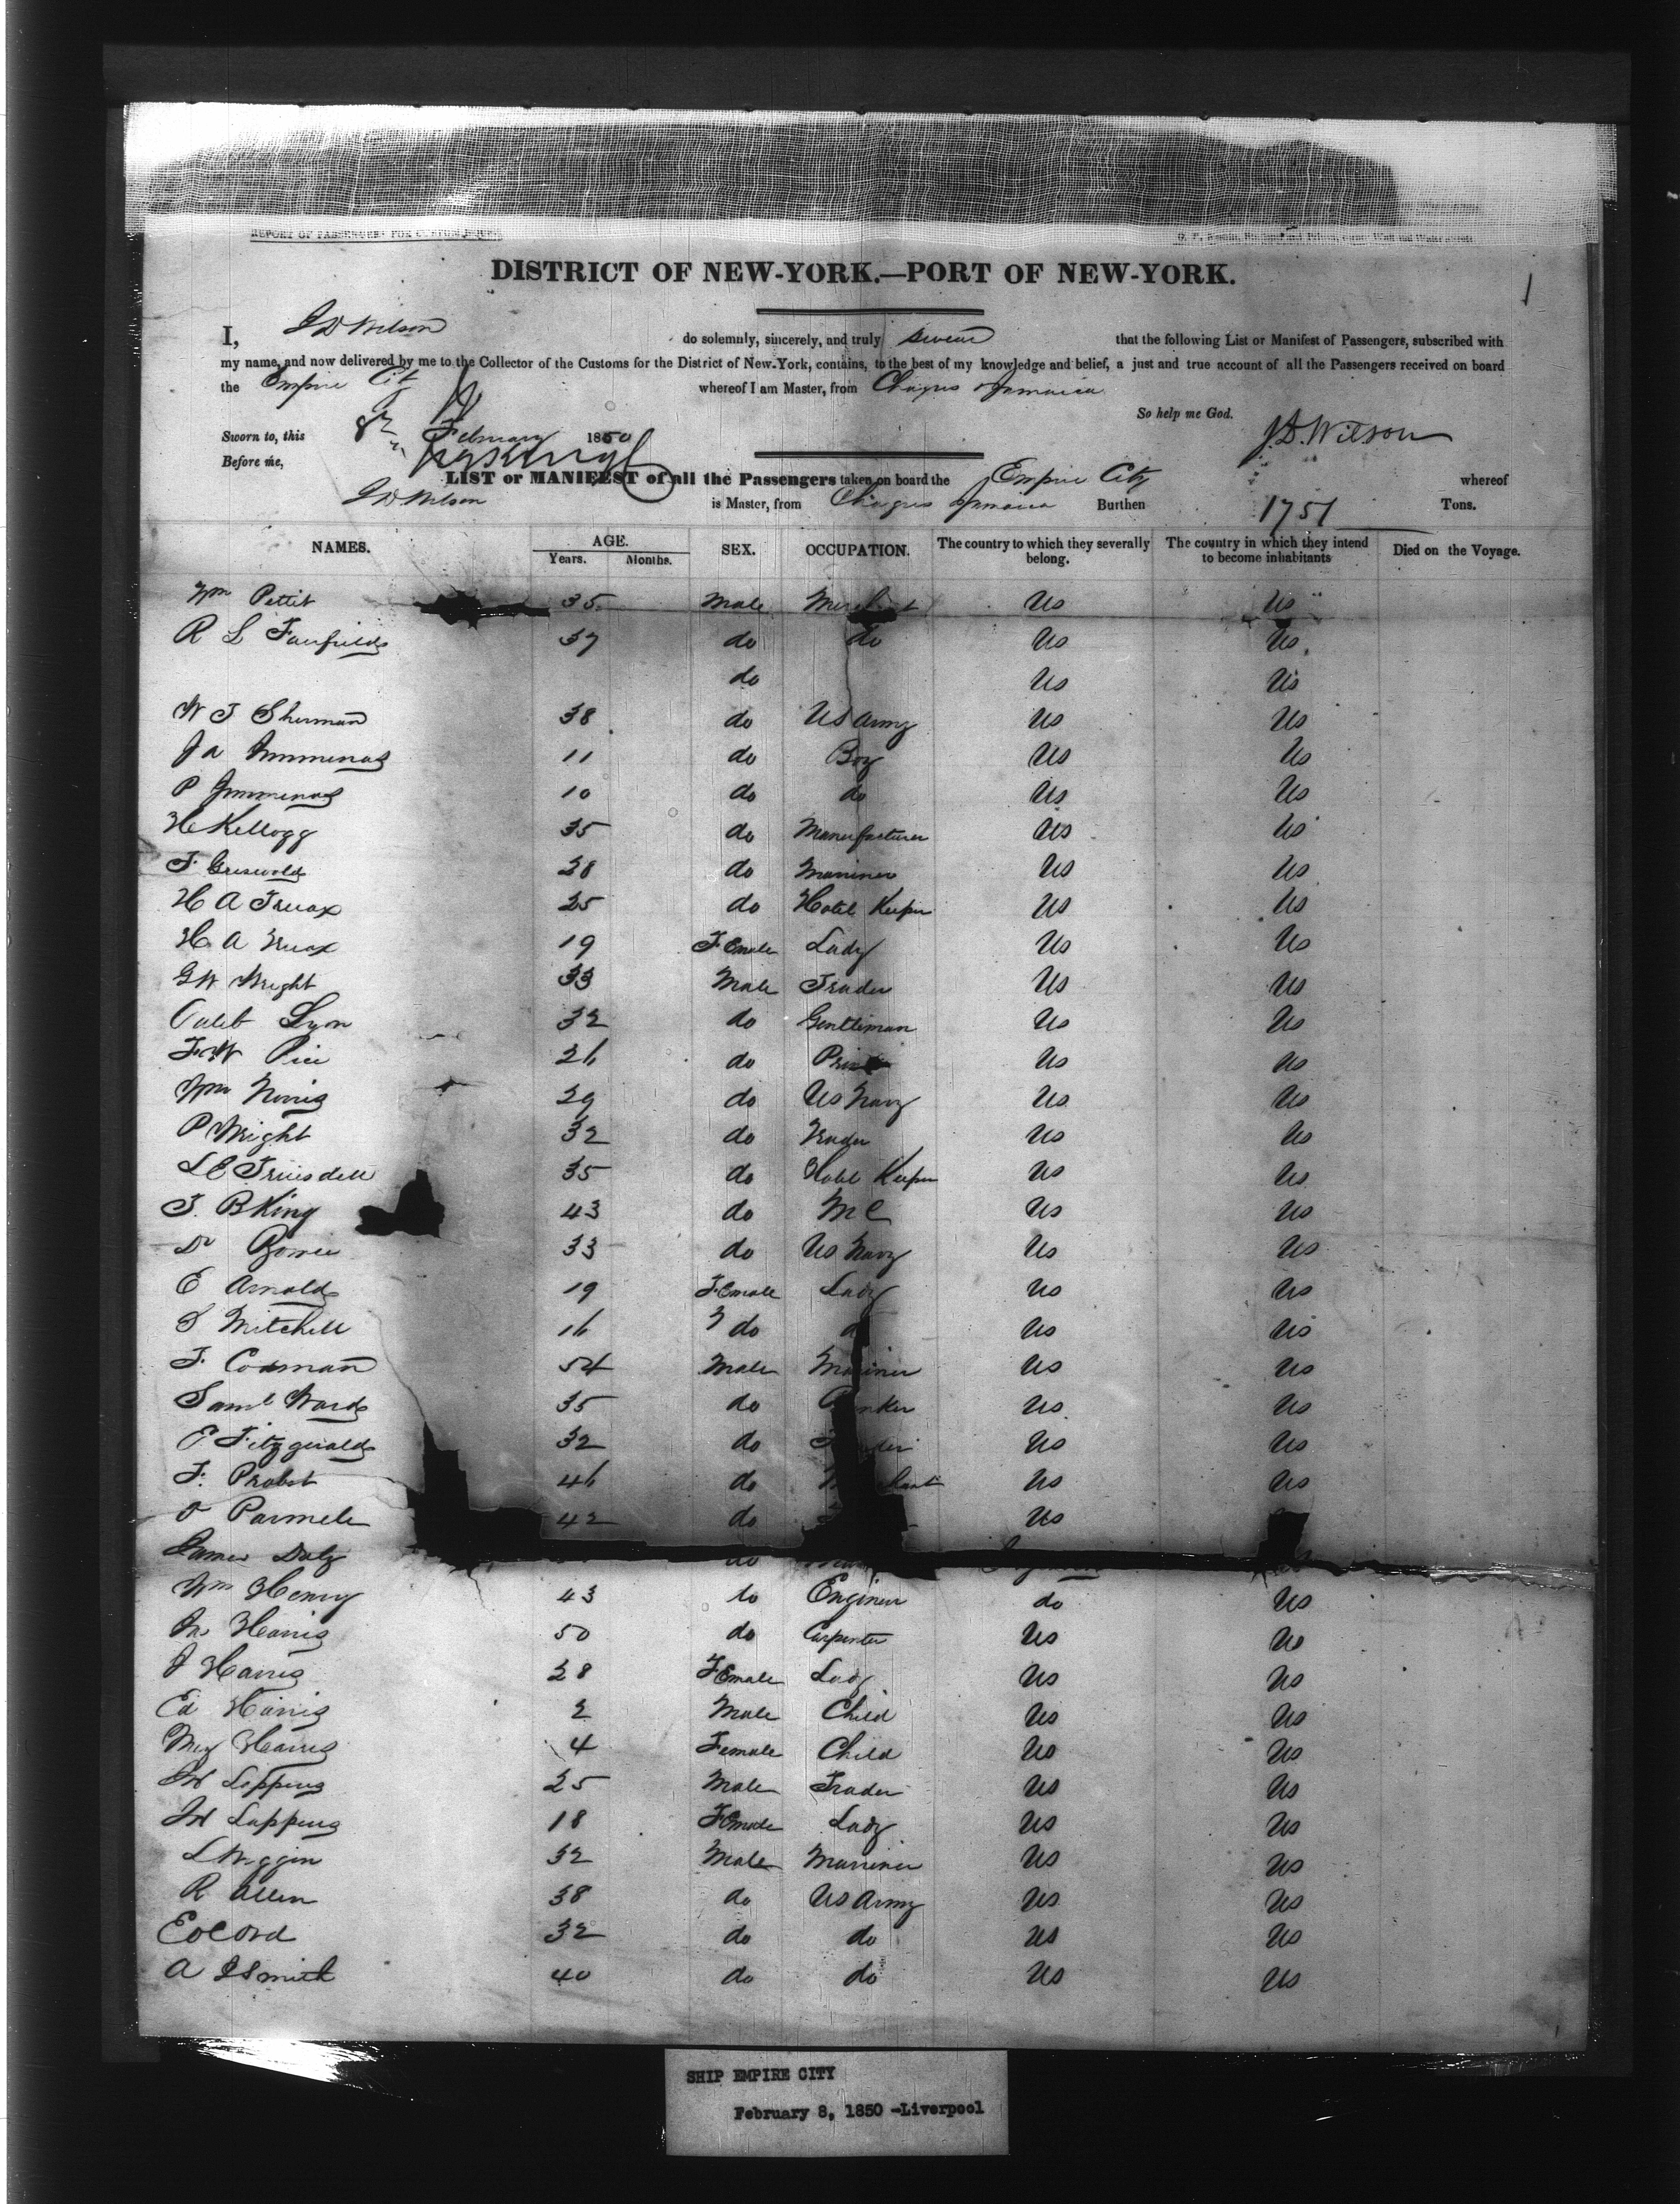 REPORT OF PASSENGERS FOR CUSTOM HOUSE
DISTRICT OF NEW-YORK.—PORT OF NEW-YORK.
1
I, J D Wilson do solemnly, sincerely, and truly swear that the following List or Manifest of Passengers, subscribed with
my name, and now delivered by me to the Collector of the Customs for the District of New-York, contains, to the best of my knowledge and belief, a just and true account of all the Passengers received on board
the Empire City whereof I am Master, from Chagres Jamaica
So help me God.
Sworn to, this 8th February 1850 J.D. Wilson
Before me,
LIST or MANIFEST of all the Passengers taken on board the Empire City whereof
J D Wilson is Master, from Chagres Jamaica Burthen 1751 Tons.
NAMES. AGE. Years. Months. SEX. OCCUPATION. The country to which they severally belong. The country in which they intend to become inhabitants Died on the Voyage.
Wm Pettit 35 Male Us Us
R L Fairfield 37 do do Us Us
do Us Us
W T Sherman 38 do US Army Us Us
Ja 11 do Boy Us Us
P 10 do do Us Us
H Kellogg 35 do Manufacturer Us Us
F. Griswold 28 do Mariner Us Us
H A Truax 25 do Hotel Keeper Us Us
H A Truax 19 Female Lady Us Us
G W Wright 33 Male Trader Us Us
Caleb Lyon 32 do Gentleman Us Us
F. W 26 do Us Us
Wm Norris 29 do Us Navy Us Us
P Wright 32 do Trader Us Us
L C Truesdell 35 do Hotel Keeper Us Us
T. B King 43 do M C Us Us
Dr Bowie 33 do Us Navy Us Us
E Arnold 19 Female Lady Us Us
S Mitchell 16 do Us Us
F. Codman 54 Male Mariner Us Us
Saml Ward 35 do Us Us
E Fitzgerald 32 do Us Us
F. Probst 46 do Us Us
O Parmele 42 do Us
James Daly do
Wm Henry 43 do Engineer do Us
Harris 50 do Carpenter Us Us
J Harris 28 Female Lady Us Us
Ed Harris 2 Male Child Us Us
Mry Harris 4 Female Child Us Us
Lappeus 25 Male Trader Us Us
Lappeus 18 Female Lady Us Us
L Wiggin 32 Male Mariner Us Us
R Allen 38 do Us Army Us Us
E O C Ord 32 do do Us Us
A J Smith 40 do do Us Us
SHIP EMPIRE CITY
February 8, 1850 -Liverpool